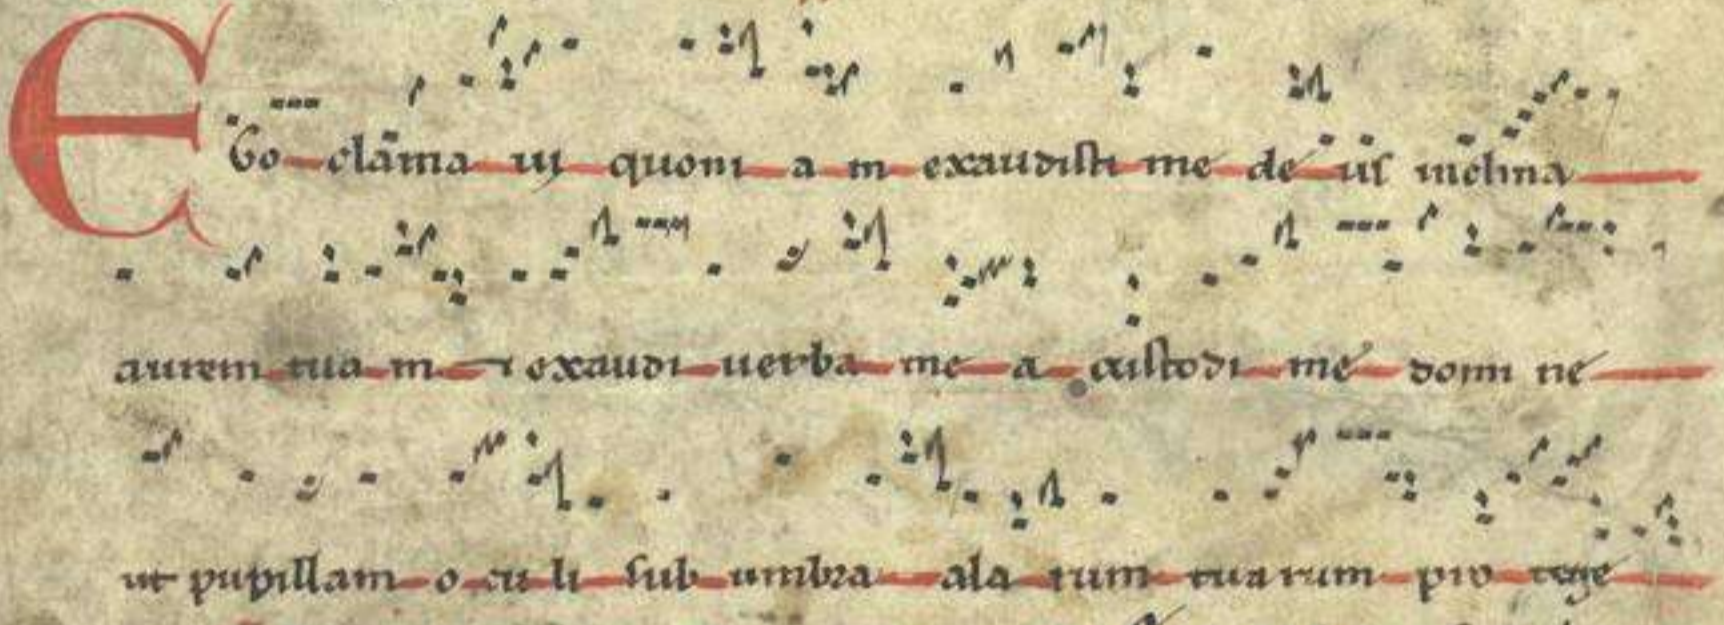 EGo clāma ui quoni a m exaudisti me de us inclina
aurem tua m ⁊ exaudi uerba me a custodi me domi ne
ut pupillam o cu li sub umbra ala rum tuarum pro tege